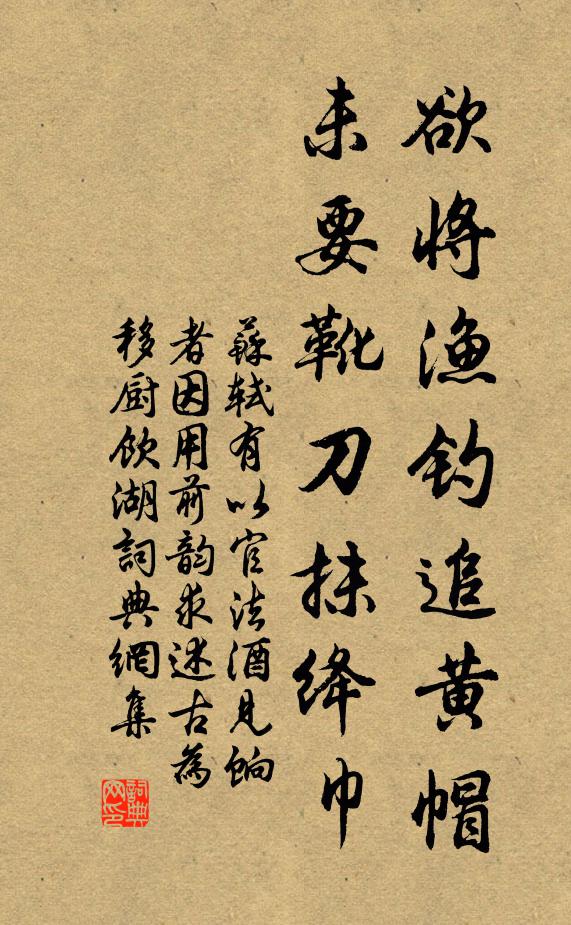 欲將漁釣追黄帽
未要靴刀抹絳巾
蘇軾有以官法酒見餉
者因用前韵求述古為
移厨飲湖詞典網集
詞典网印